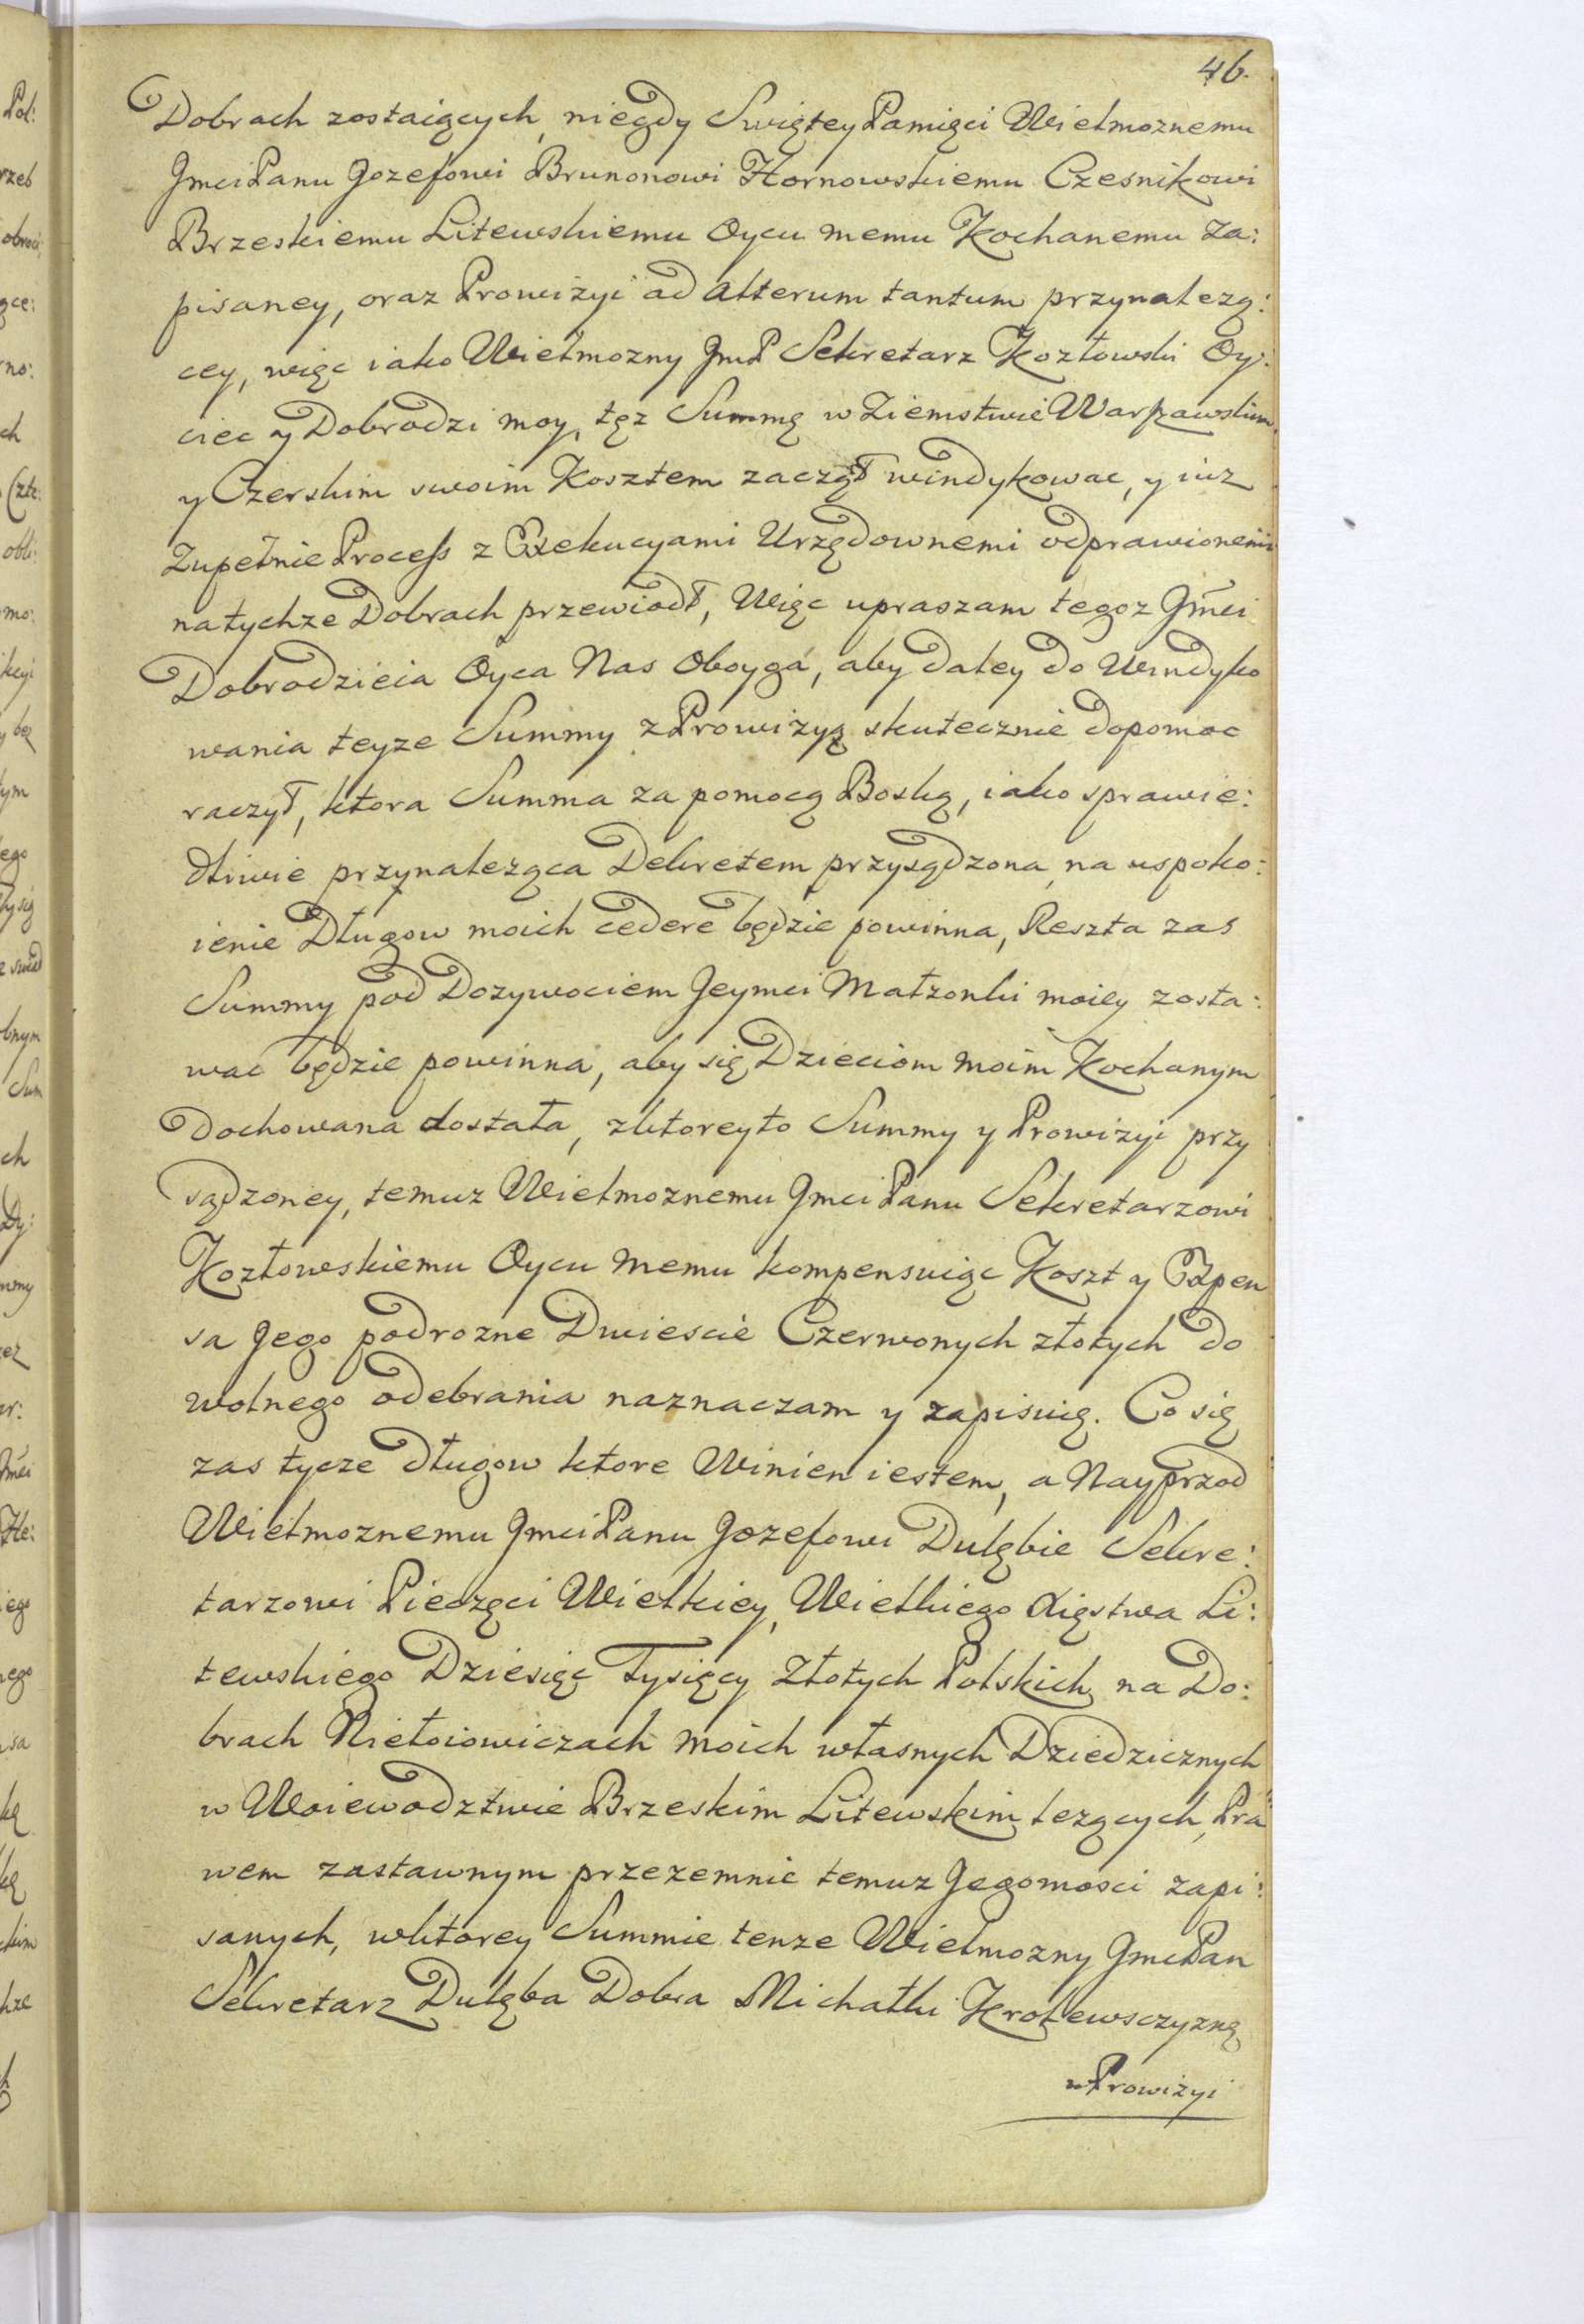 46.
Dobrach zostaiących, niegdy Swiętey Pamięci Wielmoznemu
JmciPanu Jozefowi Brunonowi Hornowskiemu Czesnikowi
Brzeskiemu Litewskiemu Oycu memu Kochanemu Za:
pisaney, oraz Prowizyi ad alterum tantum przynalezą:
cey, więc iako Wielmozny JmP Sekretarz Kozłowski Oy:
ciec y Dobrodzi moy, tęz Summę w Ziemstwie Warszawskim
y Czerskim swoim Kosztem zaczął windykowac, y iuz
Zupełnie Process z Exekucyami Urzędownemi odprawionemi
natychze Dobrach przewiodł, Więc upraszam tegoz Jmci
Dobrodzieia Oyca Nas Oboyga, aby daley do Windyko
wania teyze Summy z Prowizyą skutecznie dopomoc
raczył, ktora Summa za pomocą Boską, iako sprawie:
dliwie przynależąca Dekretem przysądzona, na uspoko:
ienie Długow moich cedere będzie powinna, Reszta zas
Summy pod Dozywociem Jeymci Małzonki moiey zosta:
wac będzie powinna, aby się Dzieciom moim Kochanym
Dochowana dostała, zktoreyto Summy y Prowizyi przy
sądzoney, temuz Wielmoznemu JmciPanu Sekretarzowi
Kozłowskiemu Oycu memu kompensuiąc Koszt y Expen
sa Jego podrozne Dwiescie Czerwonych złotych do
wolnego odebrania naznaczam y zapisuię. Co się
zas tycze długow ktore Winien iestem, a Nayprzod
Wielmoznemu JmciPanu Jozefowi Dulębie Sekre:
tarzowi Pieczęci Wielkiey, Wielkiego Xięstwa Li:
tewskiego Dziesięć Tysięcy Złotych Polskich na Do:
brach Nietoiowiczach moich własnych Dziedzicznych
w Woiewodztwie Brzeskim Litewskim lezących, Pra
wem zastawnym przezemnie temuz Jegomosci zapi:
sanych, wktorey Summie tenze Wielmozny JmcPan
Sekretarz Dulęba Dobra Michałki Krolewsczyznę
w Prowizyi